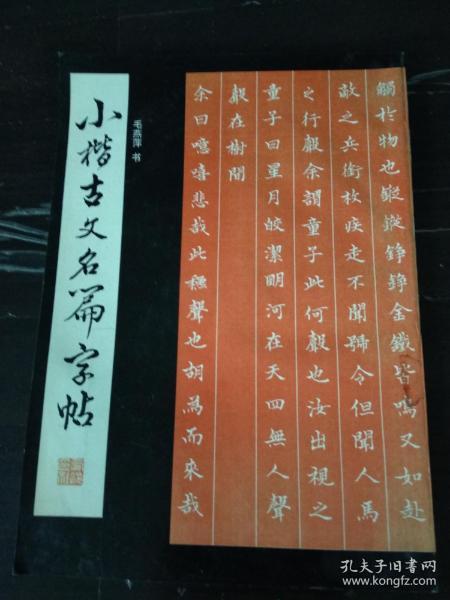 小楷古文名篇字帖
毛燕萍 书
觸於物也鏦鏦錚錚金鐵皆鳴又如赴
敵之兵銜枚疾走不聞號令但聞人馬
之行聲余謂童子此何聲也汝出視之
童子曰星月皎潔明河在天四無人聲
聲在樹間
余曰噫嘻悲哉此秋聲也胡為而來哉
孔夫子旧书网
www.kongfz.com